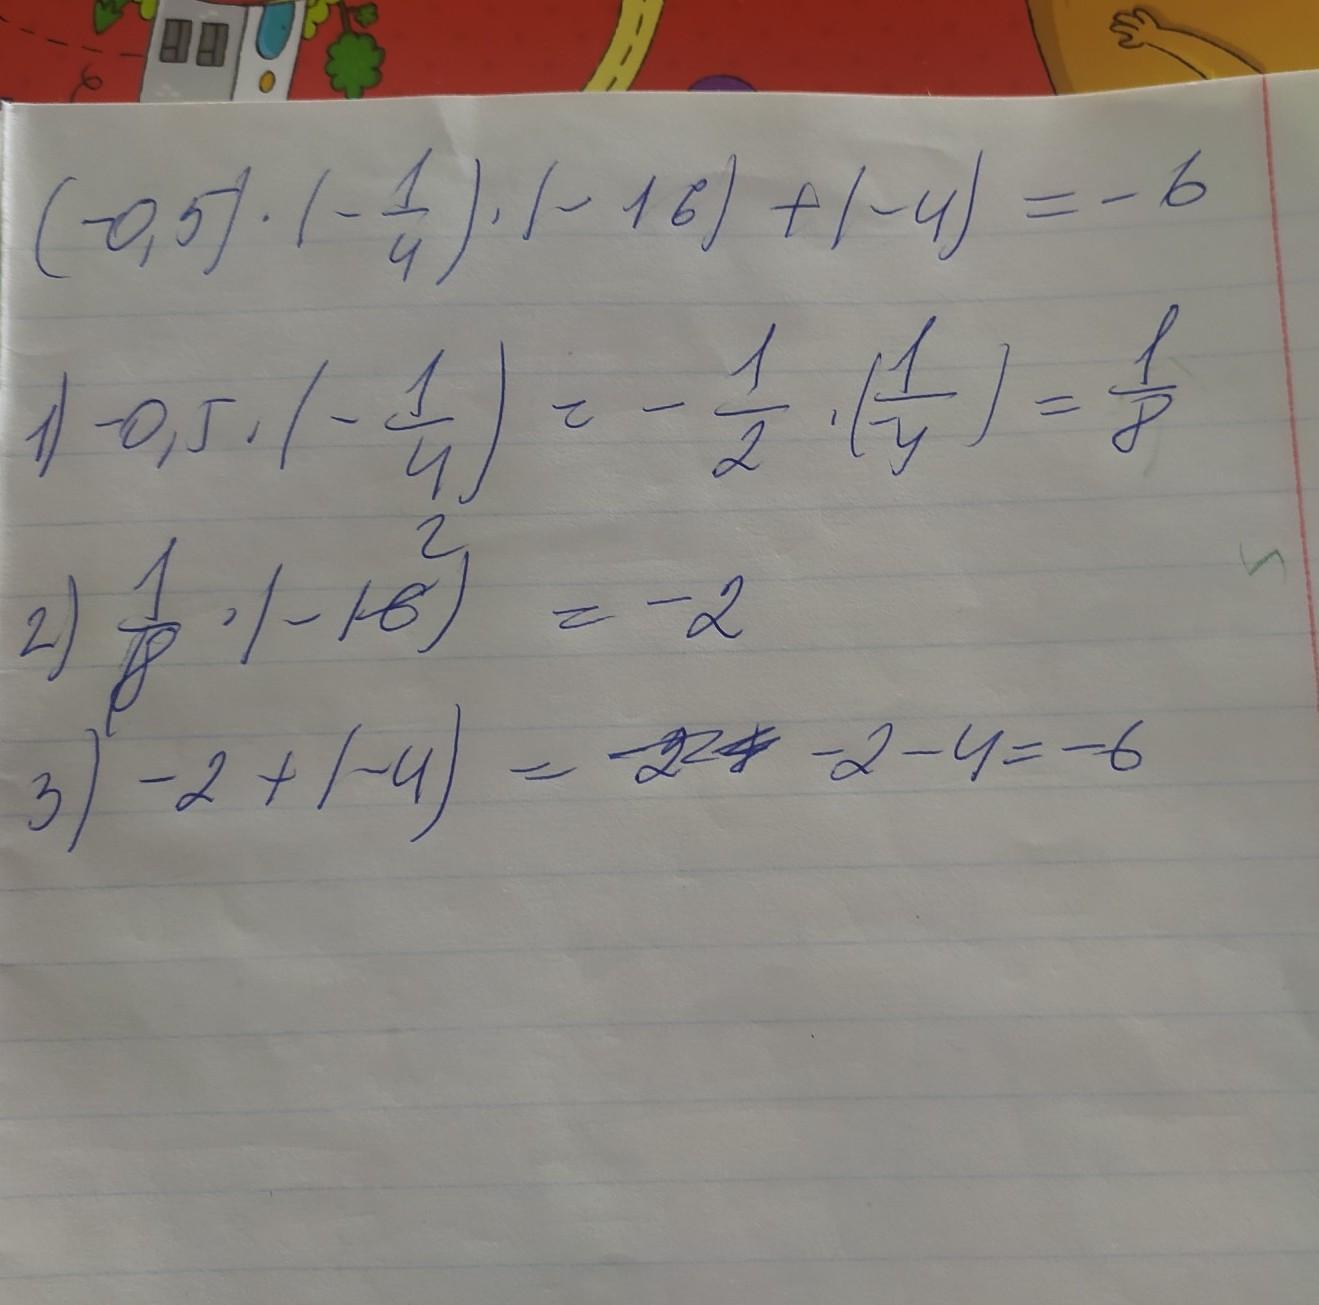 (-0,5) · (-1/4) · (-16) + (-4) = -6
1) -0,5 · (-1/4) = -1/2 · (1/-4) = 1/8
2) 1/8 · (-16) = -2
2
3) -2 + (-4) = -2-4 = -6